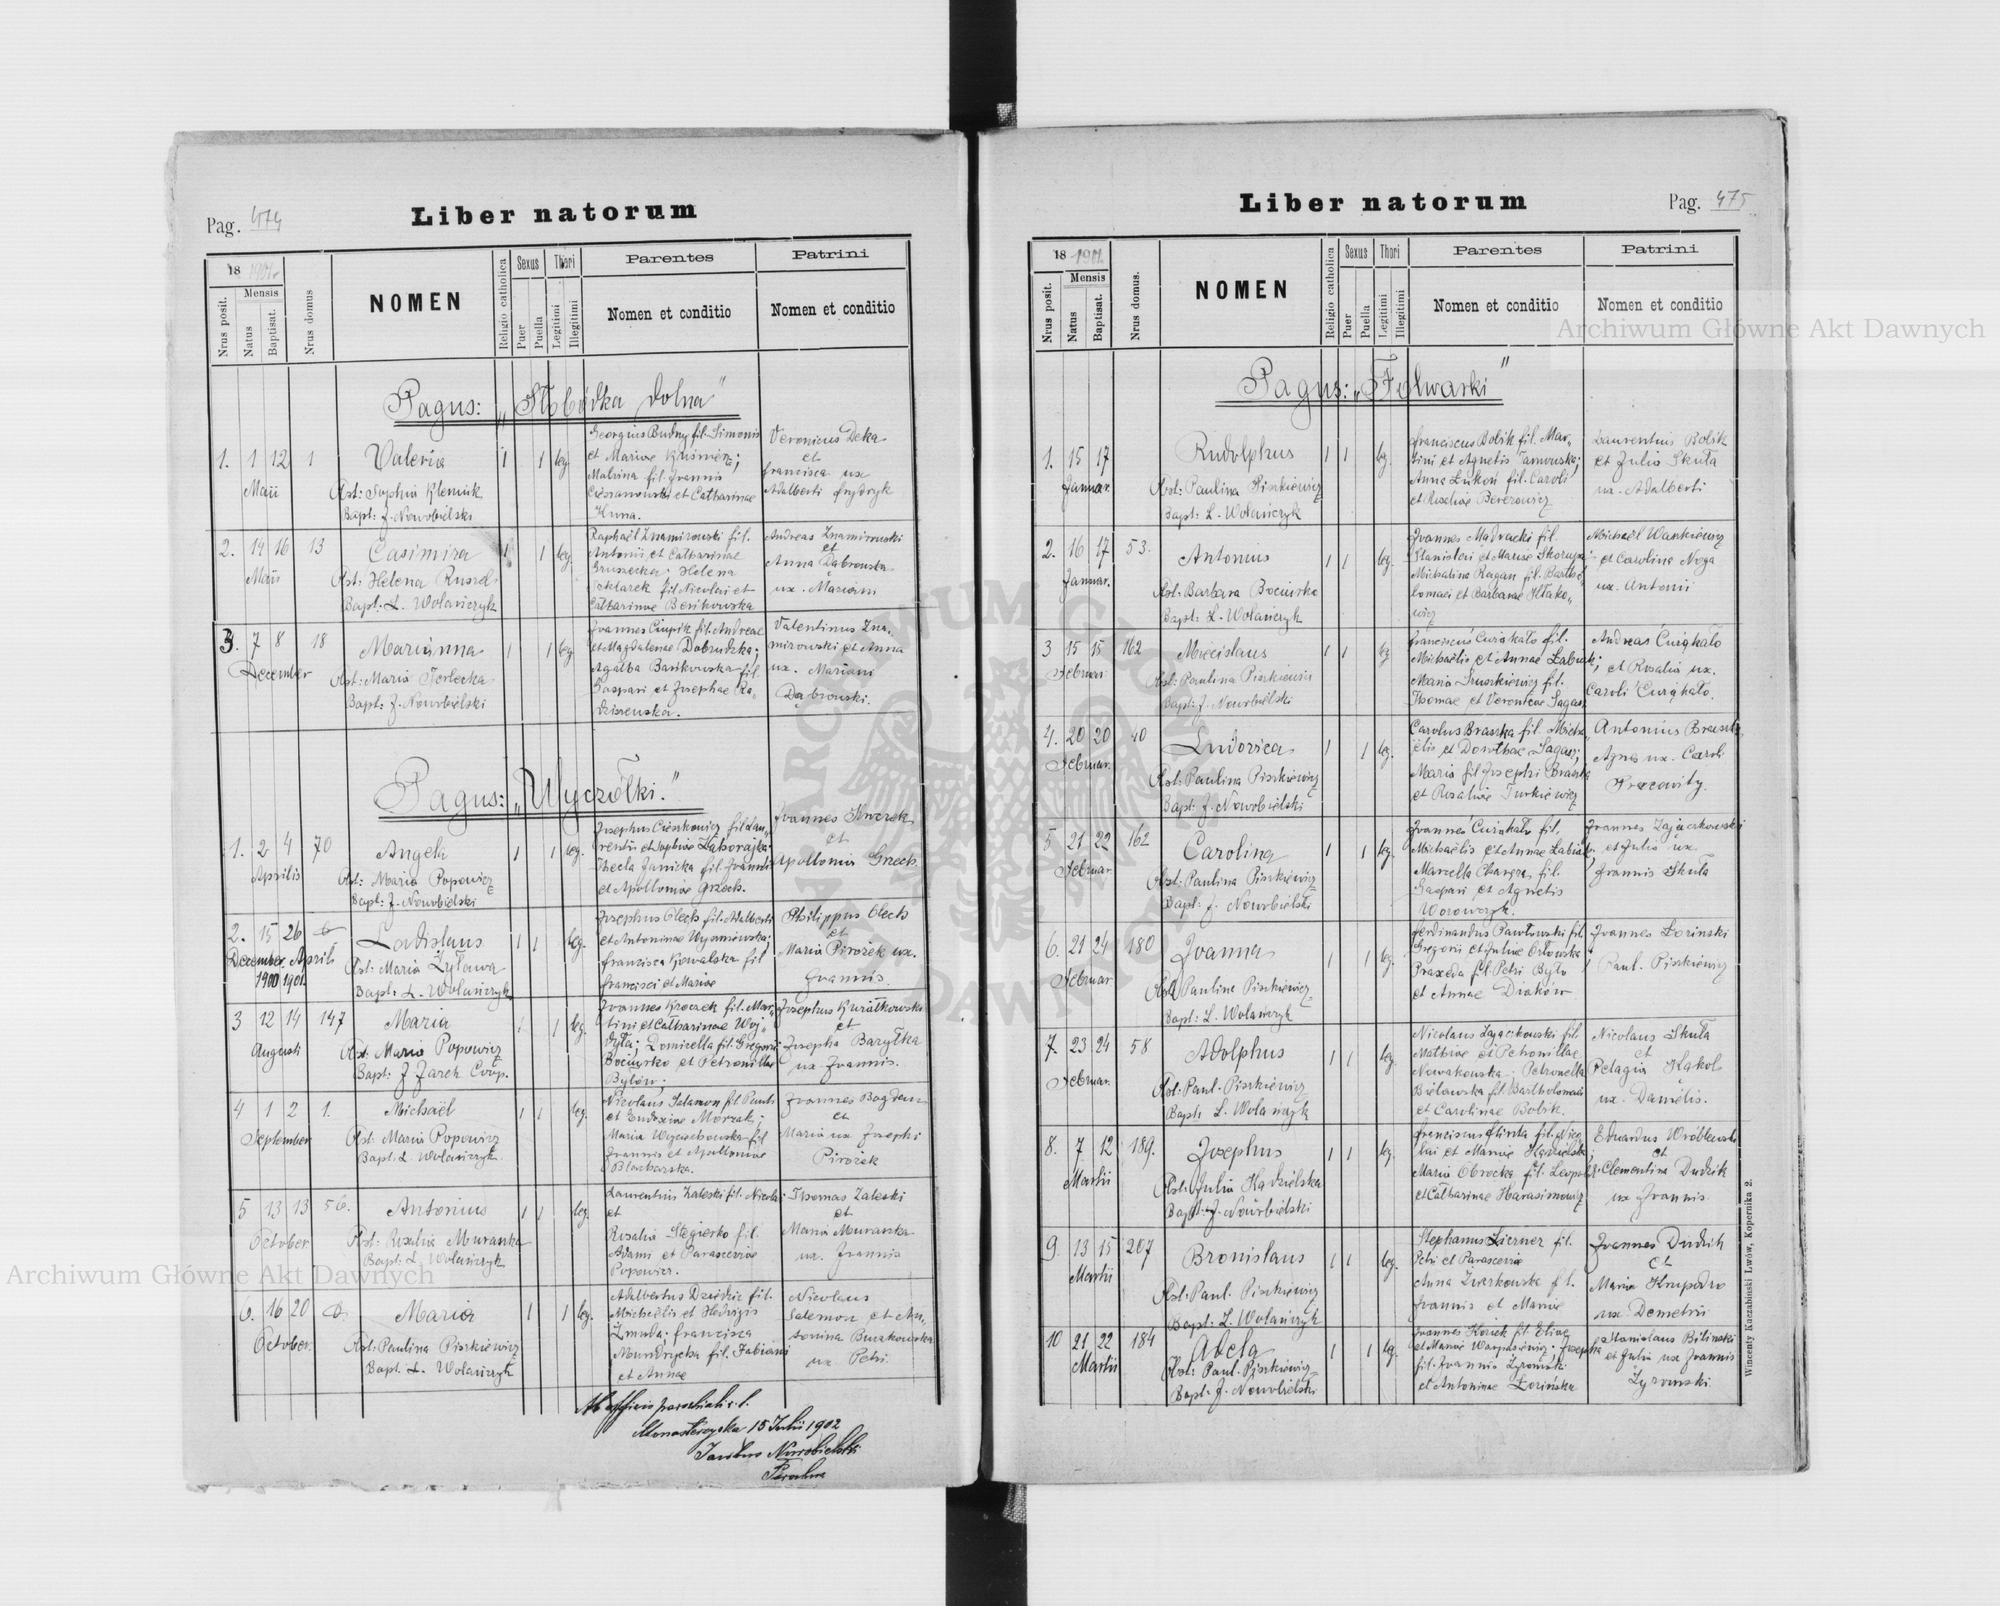 Pag. 474
Liber natorum
18 1901
Mensis
Nrus posit.
Natus
Baptisat.
Nrus domus
NOMEN
Religio catholica
Sexus
Puer
Puella
Thori
Legitimi
Illegitimi
Parentes
Nomen et conditio
Patrini
Nomen et conditio
Pagus: "Słobódka dolna"
1. 1 12 1 Valeria 1 1 leg.
Maji
Obst: Sophia Klemik
Bapt: J. Nowobielski
Georgius Budny fil. Simonis
et Mariae
Malvina fil. Joannis
et Catharinae
Veronicus Deka
et
Francisca ux.
Adalberti Frydryk
2. 14 16 13 Casimira 1 1 leg.
Maji
Obst: Helena
Bapt: L. Wolańczyk
Raphaël Znamirowski fil.
Antonii et Catharinae
Gruszecka; Helena
fil. Nicolai et
Catharinae
Andreas Znamirowski
et
Anna Dąbrowska
ux. Mariani
3. 7 8 18 Marianna 1 1 leg.
December
Obst: Maria Terlecka
Bapt: J. Nowobielski
Joannes fil. Andreae
et Magdalenae
Agatha fil.
Gaspari et Josephae
Valentinus Zna-
mirowski et Anna
ux. Mariani
Dąbrowski.
Pagus: "Wyczółki."
1. 2 4 70 Angela 1 1 leg.
Aprilis
Obst: Maria Popowicz
Bapt: J. Nowobielski
Josephus Cieszkowicz fil. Lau-
rentii et Sophiae
Thecla Janicka fil. Joannis
et Apolloniae Grzech.
Joannes
et
Apollonia Grzech
2. 15 26 Ladislaus 1 1 leg.
December Aprili
1900 1901
Obst: Maria Żyława
Bapt: L. Wolańczyk
Josephus Olech fil. Adalberti
et Antoninae
Francisca Kowalska fil.
Francisci et Mariae
Philippus Olech
et
Maria Pirożek ux.
Joannis.
3 12 14 147 Maria 1 1 leg.
Augusti
Obst: Maria Popowicz
Bapt: J. Jarek Coop.
Joannes Kroczek fil. Mar-
tini et Catharinae Woj-
dyła; Domicella fil. Gregorii
Bociurko et Petronillae
Byłów.
Josephus
et
Josepha Baryłka
ux. Joannis.
4 1 2 1. Michaël 1 1 leg.
September
Obst: Maria Popowicz
Bapt. L. Wolańczyk
Nicolaus Salamon fil. Pauli
et Eudoxiae
Maria Wojciechowska fil.
Joannis et Apolloniae
Joannes Bogdan
et
Maria ux. Josephi
Pirożek
5 13 13 56. Antonius 1 1 leg.
October
Obst: Rosalia Muranka
Bapt: L. Wolańczyk
Laurentius Zaleski fil. Nicolai
et
Rosalia fil.
Adami et Parasceviae
Popowicz.
Thomas Zaleski
et
Maria Muranka
ux. Joannis
6. 16 20 Maria 1 1 leg.
October.
Obst: Paulina Piszkiewicz
Bapt: L. Wolańczyk
Adalbertus fil.
Michaëlis et Hedvigis
Żmuda; Francisca
fil. Fabiani
et Annae
Nicolaus
Salamon et An-
tonina
ux. Petri
Ab officio parochiali r. l.
15 Julii 1902
Nowobielski
Parochus
Liber natorum
Pag. 475
18 1901
Mensis
Nrus posit.
Natus
Baptisat.
Nrus domus.
NOMEN
Religio catholica
Sexus
Puer
Puella
Thori
Legitimi
Illegitimi
Parentes
Nomen et conditio
Patrini
Nomen et conditio
Archiwum Główne Akt Dawnych
Pagus: "Folwarki"
1. 15 17 Rudolphus 1 1 leg.
Januar.
Obst: Paulina Piszkiewicz
Bapt: L. Wolańczyk
Franciscus Bolik fil. Mar-
tini et Agnetis Tarnowska;
Anna fil. Caroli
et Rosaliae
Laurentius Bolik
et Julia Skuła
ux. Adalberti
2. 16 17 53. Antonius 1 1 leg.
Januar.
Obst: Barbara Bociurko
Bapt: L. Wolańczyk
Joannes fil.
Stanislai et Mariae Skorupa
Michalina fil. Bartho-
lomaei et Barbarae
Michaël
et Carolina Noga
ux. Antonii
3 15 15 162 Miecislaus 1 1 leg.
Februar.
Obst: Paulina Piszkiewicz
Bapt: J. Nowobielski
Franciscus Curąkało fil.
Michaëlis et Annae Łabiak;
Maria fil.
Thomae et Veronicae Sagasz
Andreas Curąkało
et Rosalia ux.
Caroli Curąkało.
4. 20 20 40 Ludovica 1 1 leg.
Februar.
Obst: Paulina Piszkiewicz
Bapt: J. Nowobielski
Carolus Braszka fil. Micha-
ëlis et Dorotheae Sagasz;
Maria fil. Josephi Braszka
et Rosaliae Turkiewicz
Antonius Braszka
Agnes ux. Caroli
Pracowity.
5 21 22 162 Carolina 1 1 leg.
Februar.
Obst: Paulina Piszkiewicz
Bapt: J. Nowobielski
Joannes Curąkało fil.
Michaëlis et Annae Łabiak;
Marcella fil.
Gaspari et Agnetis
Worowczyk.
Joannes Zajączkowski
et Julia ux.
Joannis Skuła
6. 21 24 180 Joanna 1 1 leg.
Februar
Obst: Paulina Piszkiewicz
Bapt: L. Wolańczyk
Ferdinandus Pawłowski fil.
Gregorii et Juliae Orłowska
Praxeda fil. Petri Było
et Annae Diaków
Joannes Łoziński
Paul. Piszkiewicz
7. 23 24 58 Adolphus 1 1 leg.
Februar.
Obst: Paul. Piszkiewicz
Bapt: L. Wolańczyk
Nicolaus Zajączkowski fil.
Mathiae et Petronillae
Nowakowska; Petronella
Bielawska fil. Bartholomaei
et Carolinae Bolik.
Nicolaus Skuła
et
Pelagia Kąkol
ux. Danielis.
8. 7 12 189. Josephus 1 1 leg.
Martii
Obst: Julia Kądzielska
Bapt: J. Nowobielski
Franciscus fil. Nico-
lai et Mariae Kądzielska
Maria Obrocka fil. Leopoldi
et Catharinae Harasimowicz
Eduardus Wróblewski
et
Clementina Dudzik
ux. Joannis
9. 13 15 207 Bronislaus 1 1 leg.
Martii
Obst: Paul. Piszkiewicz
Bapt: L. Wolańczyk
Stephanus fil.
Petri et Parasceviae
Anna fil.
Joannis et Mariae
Joannes Dudzik
et
Maria
ux. Demetrii
10 21 22 184 Adela 1 1 leg.
Martii
Obst: Paul. Piszkiewicz
Bapt: J. Nowobielski
Joannes fil. Eliae
et Mariae Josepha
fil. Joannis Żyromski
et Antoninae Łozińska
Stanislaus Biliński
et Julia ux. Joannis
Żyromski
Wincenty Kuczabiński Lwów, Kopernika 2.
Archiwum Główne Akt Dawnych
ARCHIWUM GŁÓWNE AKT DAWNYCH